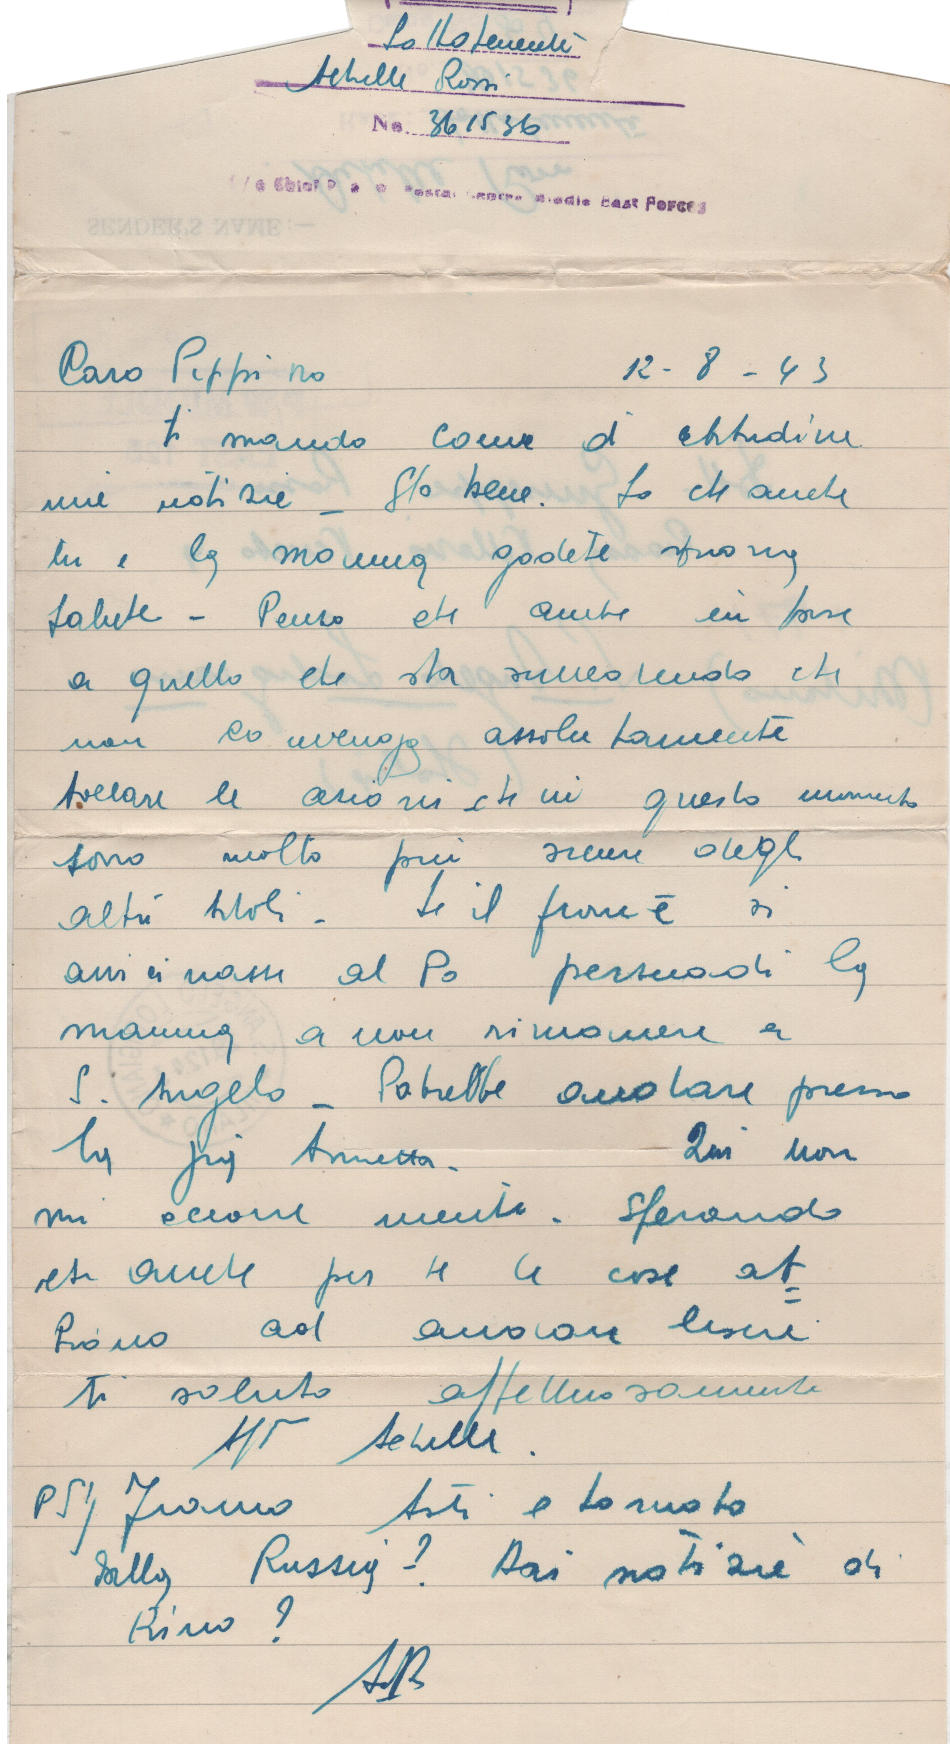 Sottotenente
Achille Rossi
No. 361536
c/o Chief P. O. W. Postal Centre Middle East Forces
SENDER'S NAME:—
Caro Peppino 12-8-43
ti mando come d'abitudine
mie notizie – Sto bene. So che anche
tu e la mamma godete buona
salute – Penso che anche in base
a quello che sta succedendo che
non convenga assolutamente
toccare le azioni che in questo momento
sono molto più sicure degli
altri titoli – Se il fronte si
avvicinasse al Po persuadi la
mamma a non rimanere a
S. Angelo – Potrebbe andare presso
la zia Annetta. Qui non
mi occorre niente. Sperando
che anche per te le cose ab=
biano ad andare bene
ti saluto affettuosamente
aff Achille.
PS/ Franco Asti e tornato
dalla Russia? Hai notizie di
Rino?
AR